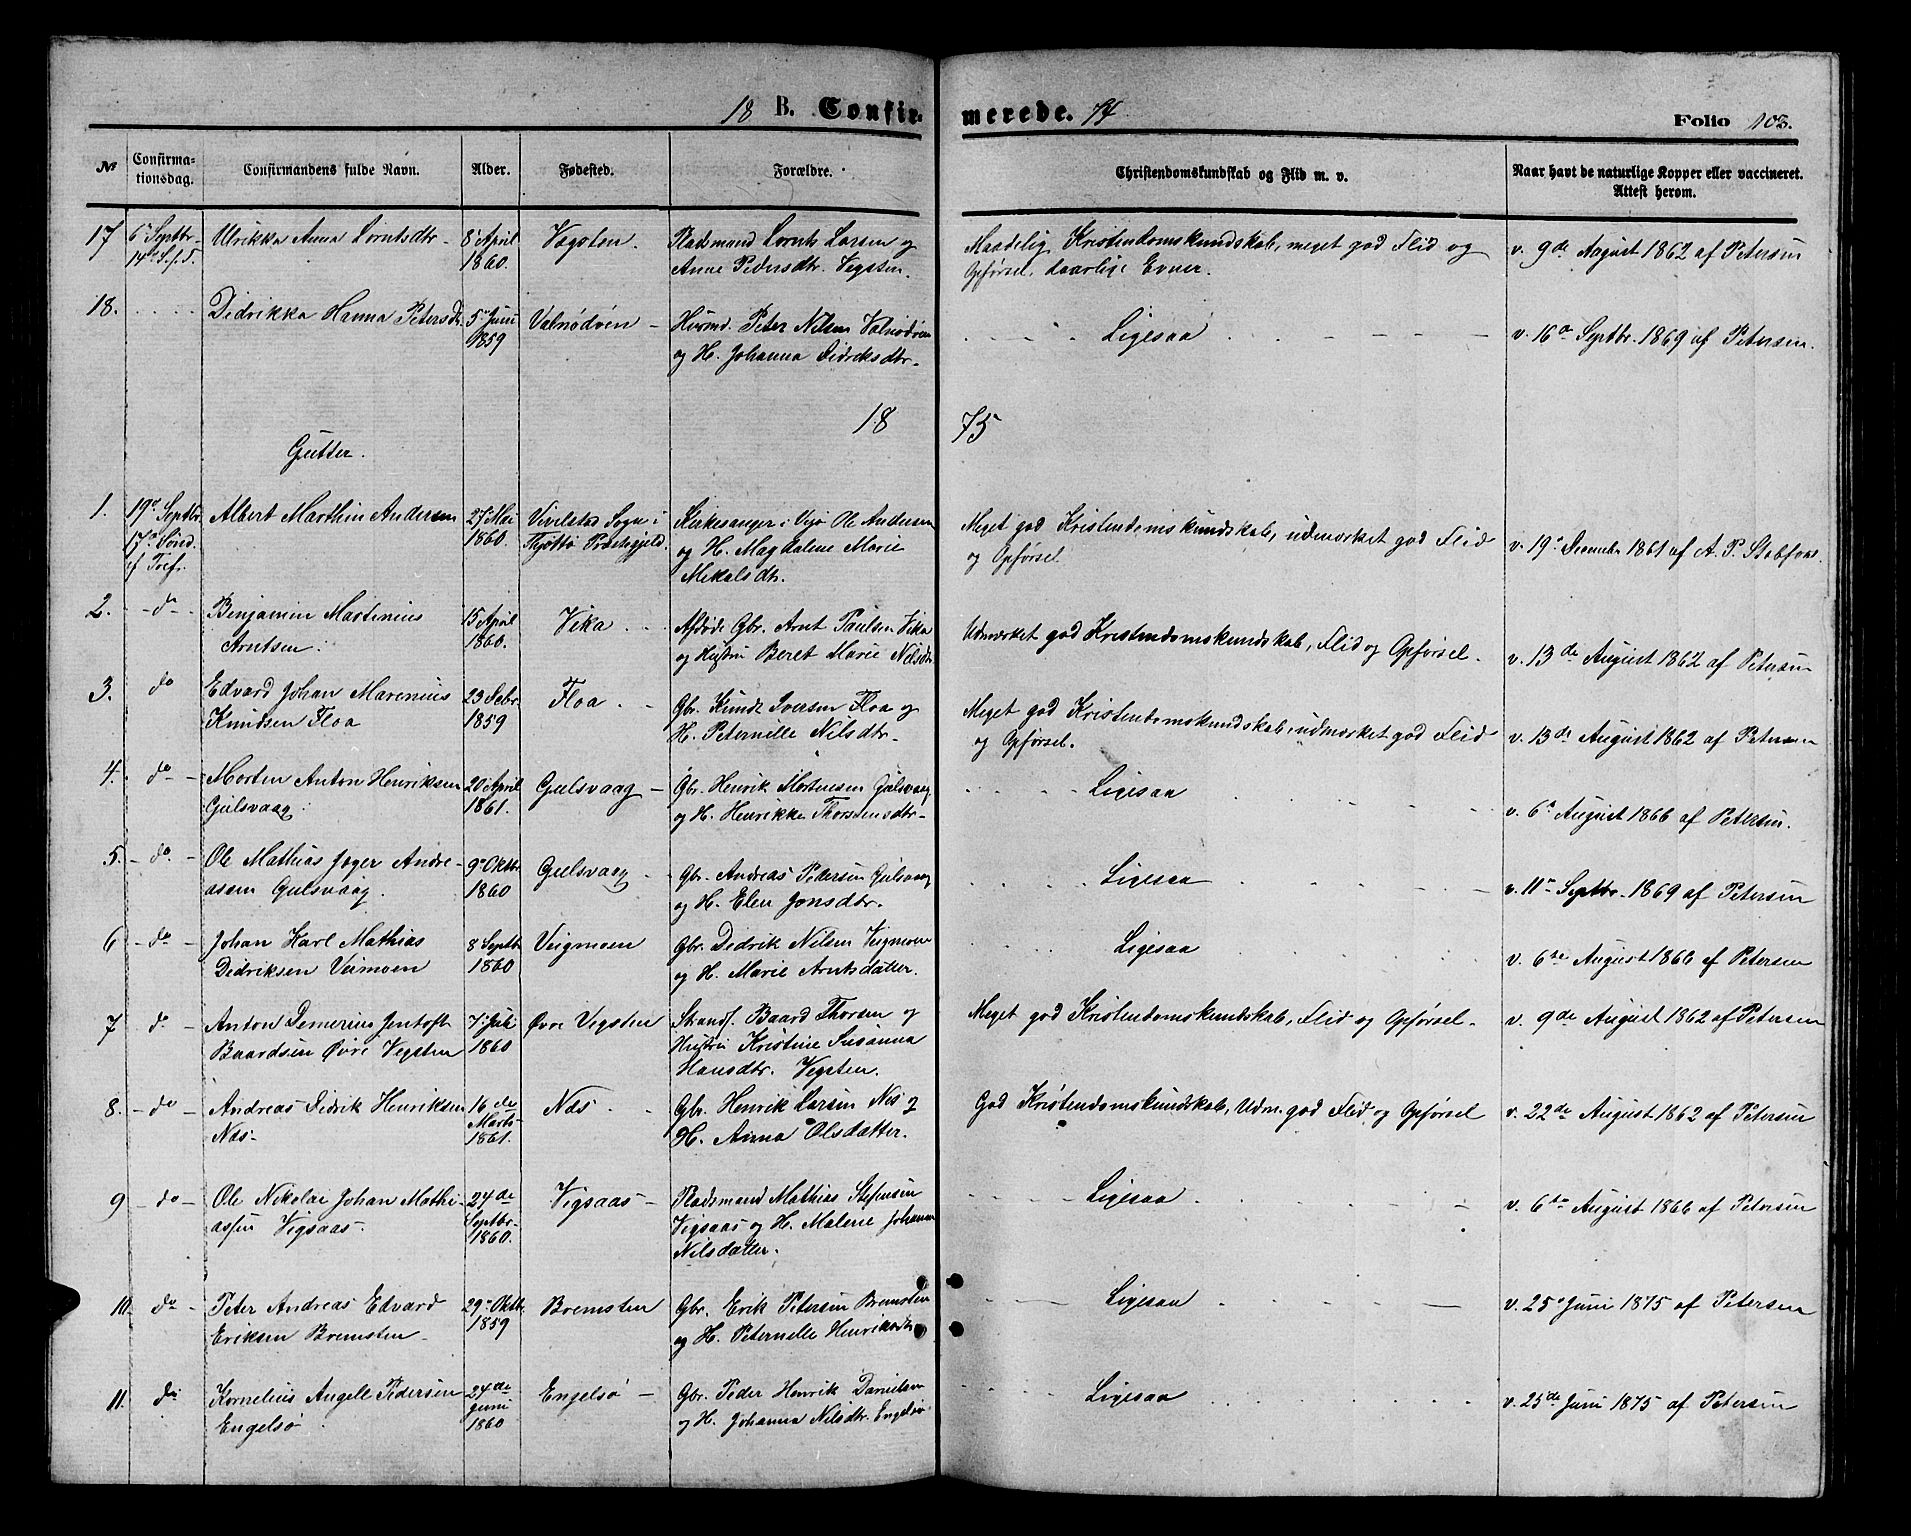 18 B. Confirmerede. 74. Folio 103.
№ Confirmationsdag. Confirmandens fulde Navn. Alder. Fødested. Forældre. Christendomskundskab og Flid m. v. Naar havt de naturlige Kopper eller vaccineret. Attest herom.
17 6te Septbr. Ulrikka Anna Lorntsdtr. 8de April Vegsten. Pladsmand Lornts Larsen og Maadelig Kristendomskundskab, meget god Flid og v. 9de August 1862 af Petersen
14de S. f. T. 1860. Anne Pedersdtr. Vegsten. Opførsel, daarlige Evner.
18. Didrikka Hanna Petersdtr. 5te Juni Valnødven Huusmd. Peter Nilsen Valnødven Ligesaa v. 16de Septbr. 1869 af Petersen.
1859 og H. Johanna Didriksdtr.
1875
Gutter.
1. 19de Septbr. Albert Marthin Andersen 27 Mai Vivelstad Sogn i Kirkesanger i Vejø Ole Andersen Meget god Kristendomskundskab, udmærket god Flid v. 19de December 1861 af A. P.
17de Sønd. 1860. Thjøttø Præstegjeld. og H. Magdalene Marie og Opførsel.
f. Tref. Mekalsdtr.
2. do Benjamin Martinius 15 April Vika Afdøde Gbr. Arnt Paulsen Vika Udmærket god Kristendomskundskab, Flid og Opførsel. v. 13de August 1862 af Petersen
Arntsen. 1860. og Hustru Beret Marie Nilsdtr.
3. do Edvard Johan Marenius 23 Febr. Floa Gbr. Knudt Iversen Floa og Meget god Kristendomskundskab, udmærket god Flid v. 13de August 1862 af Petersen
Knudsen Floa 1859 H. Peternille Nilsdtr. og Opførsel.
4. do Morten Anton Henriksen 20 April Gulsvaag Gbr. Henrik Mortensen Gulsvaag Ligesaa v. 6te August 1866 af Petersen.
Gulsvaag. 1861. og H. Henrikke Thorstensdtr.
5. do Ole Mathias Jæger Andre- 9de Oktbr. Gulsvaag Gbr. Andreas Pedersen Gulsvaag Ligesaa v. 11te Septbr. 1869 af Petersen
assen Gulsvaag. 1860 og H. Elen Jonsdtr.
6 do Johan Karl Mathias 8 Septbr. Veigmoen Gbr. Didrik Nilsen Veigmoen Ligesaa v. 6te August 1866 af Petersen
Didriksen Veimoen 1860 og H. Marie Arntsdatter.
7 do Anton Demerius Jentoft 7de Juli Øvre Vegsten Strands. Baard Thorsen og Meget god Kristendomskundskab, Flid og Opførsel. v. 9de August 1862 af Petersen
Baardsen Øvre Vegsten 1860 Hustru Kristine Susanna
Hansdtr. Vegsten.
8. do Andreas Didrik Henriksen 16de Næs Gbr. Henrik Larsen Næs og God Kristendomskundskab, Udm. god Flid og Opførsel v. 22de August 1862 af Petersen
Næs. Marts 1861. H. Anna Olsdatter.
9 do Ole Nikolai Johan Mathi- 24de Vegsaas Pladsmand Mathias Stefensen Ligesaa v. 6te August 1866 af Petersen
assen Vegsaas. Septbr. 1860. Vegsaas og H. Malene Johanna
Nilsdatter.
10. do Peter Andreas Edvard 29de Oktbr. Bremsten Gbr. Erik Petersen Bremsten Ligesaa v. 25de Juni 1875 af Petersen
Eriksen Bremsten 1859 og H. Peternelle Henriksdtr.
11. do Kornelius Angell Pedersen 24de Engelsø Gbr. Peder Henrik Danielsen Ligesaa v. 25de Juni 1875 af Petersen
Engelsø Juni 1860 og H. Johanna Nilsdtr. Engelsø